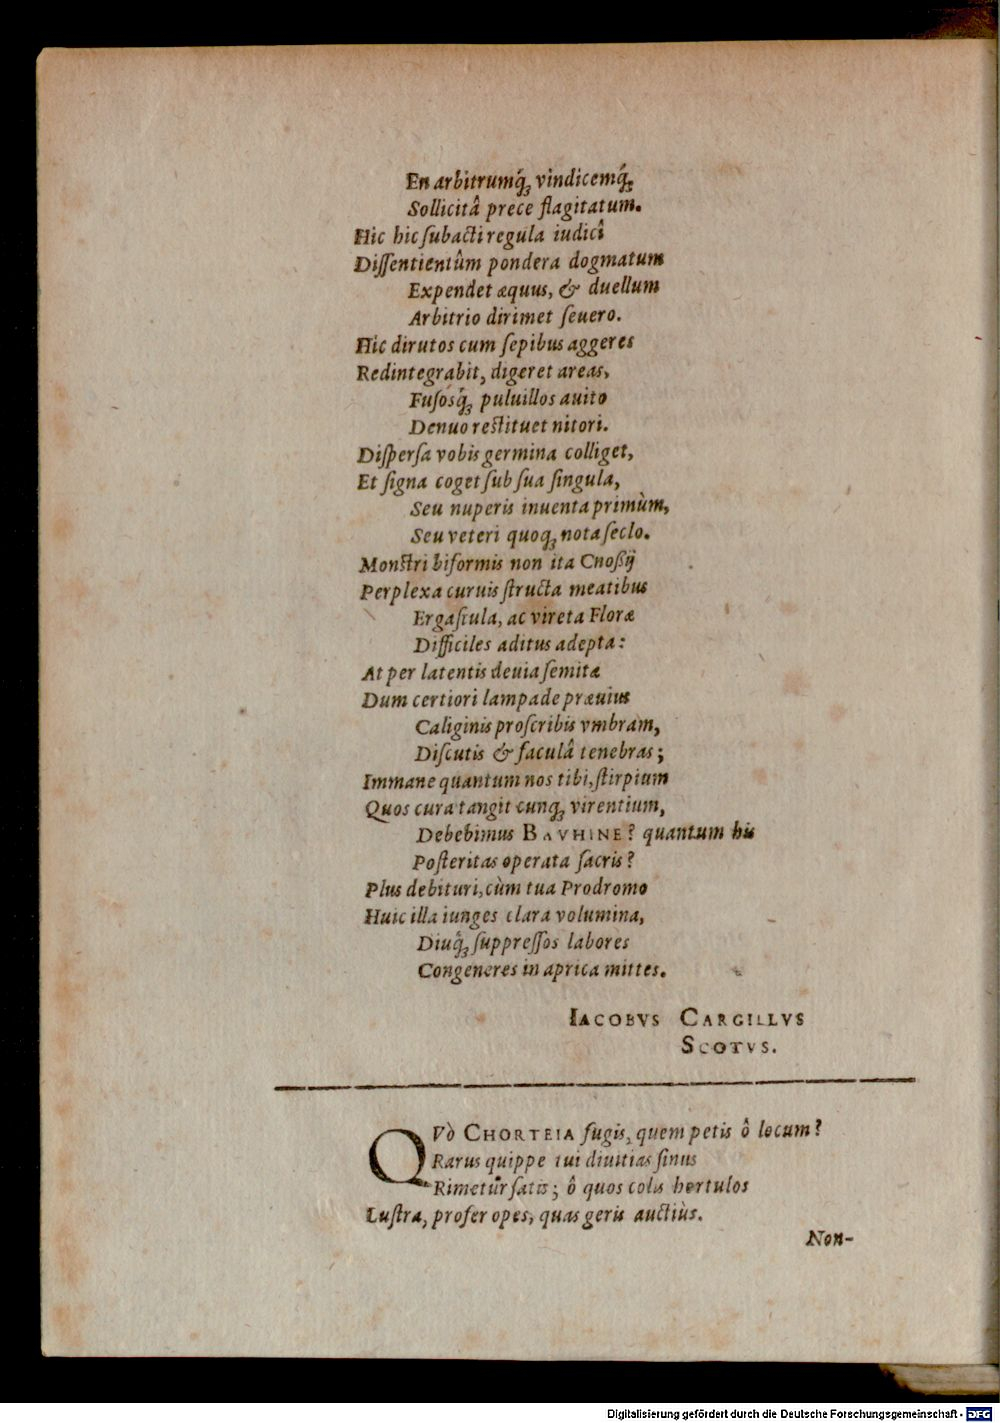 En arbitrumq́ꝫ vindicemq́ꝫ
Sollicitâ prece flagitatum.
Hic hic ſubacti regula iudicî
Diſſentientûm pondera dogmatum
Expendet æquus, & duellum
Arbitrio dirimet ſeuero.
Hic dirutos cum ſepibus aggeres
Redintegrabit, digeret areas,
Fuſosq́ꝫ puluillos auito
Denuo reſtituet nitori.
Diſperſa vobis germina colliget,
Et ſigna coget ſub ſua ſingula,
Seu nuperis inuenta primùm,
Seu veteri quoqꝫ nota ſeclo.
Monſtri biformis non ita Cnoßij
Perplexa curuis ſtructa meatibus
Ergaſtula, ac vireta Floræ
Difficiles aditus adepta:
At per latentis deuia ſemitæ
Dum certiori lampade præuius
Caliginis proſcribis vmbram,
Diſcutis & faculâ tenebras;
Immane quantum nos tibi, ſtirpium
Quos cura tangit cunqꝫ virentium,
Debebimus BAVHINE? quantum his
Poſteritas operata ſacris?
Plus debituri, cùm tua Prodromo
Huic illa iunges clara volumina,
Diuq́ꝫ ſuppreſſos labores
Congeneres in aprica mittes.
IACOBVS CARGILLVS
SCOTVS.
QVò CHORTEIA fugis, quem petis ô locum?
Rarus quippe tui diuitias ſinus
Rimetur ſatis; ô quos colis hortulos
Luſtra, profer opes, quas geris auctiùs.
Non-
Digitalisierung gefördert durch die Deutsche Forschungsgemeinschaft - DFG